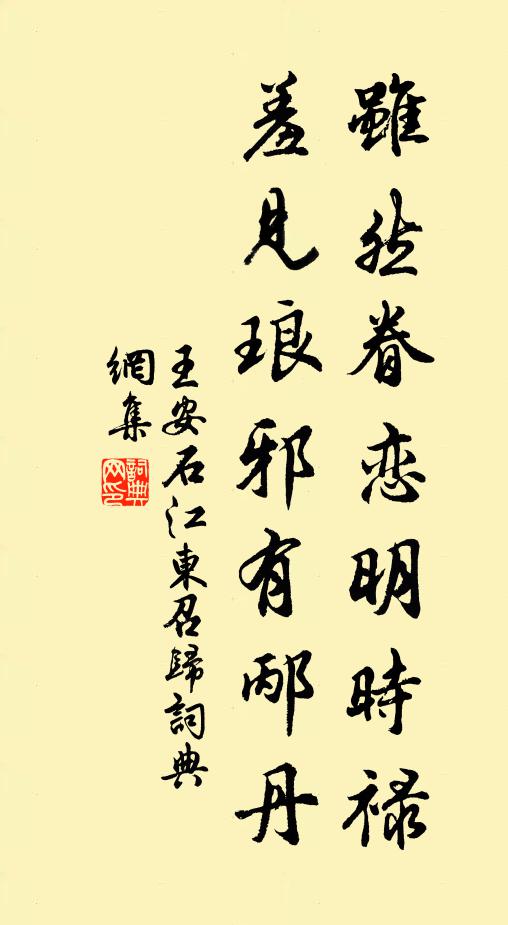 雖然眷恋明時禄
羞見琅邪有邴丹
王安石江東召歸詞典
網集
詞典網印